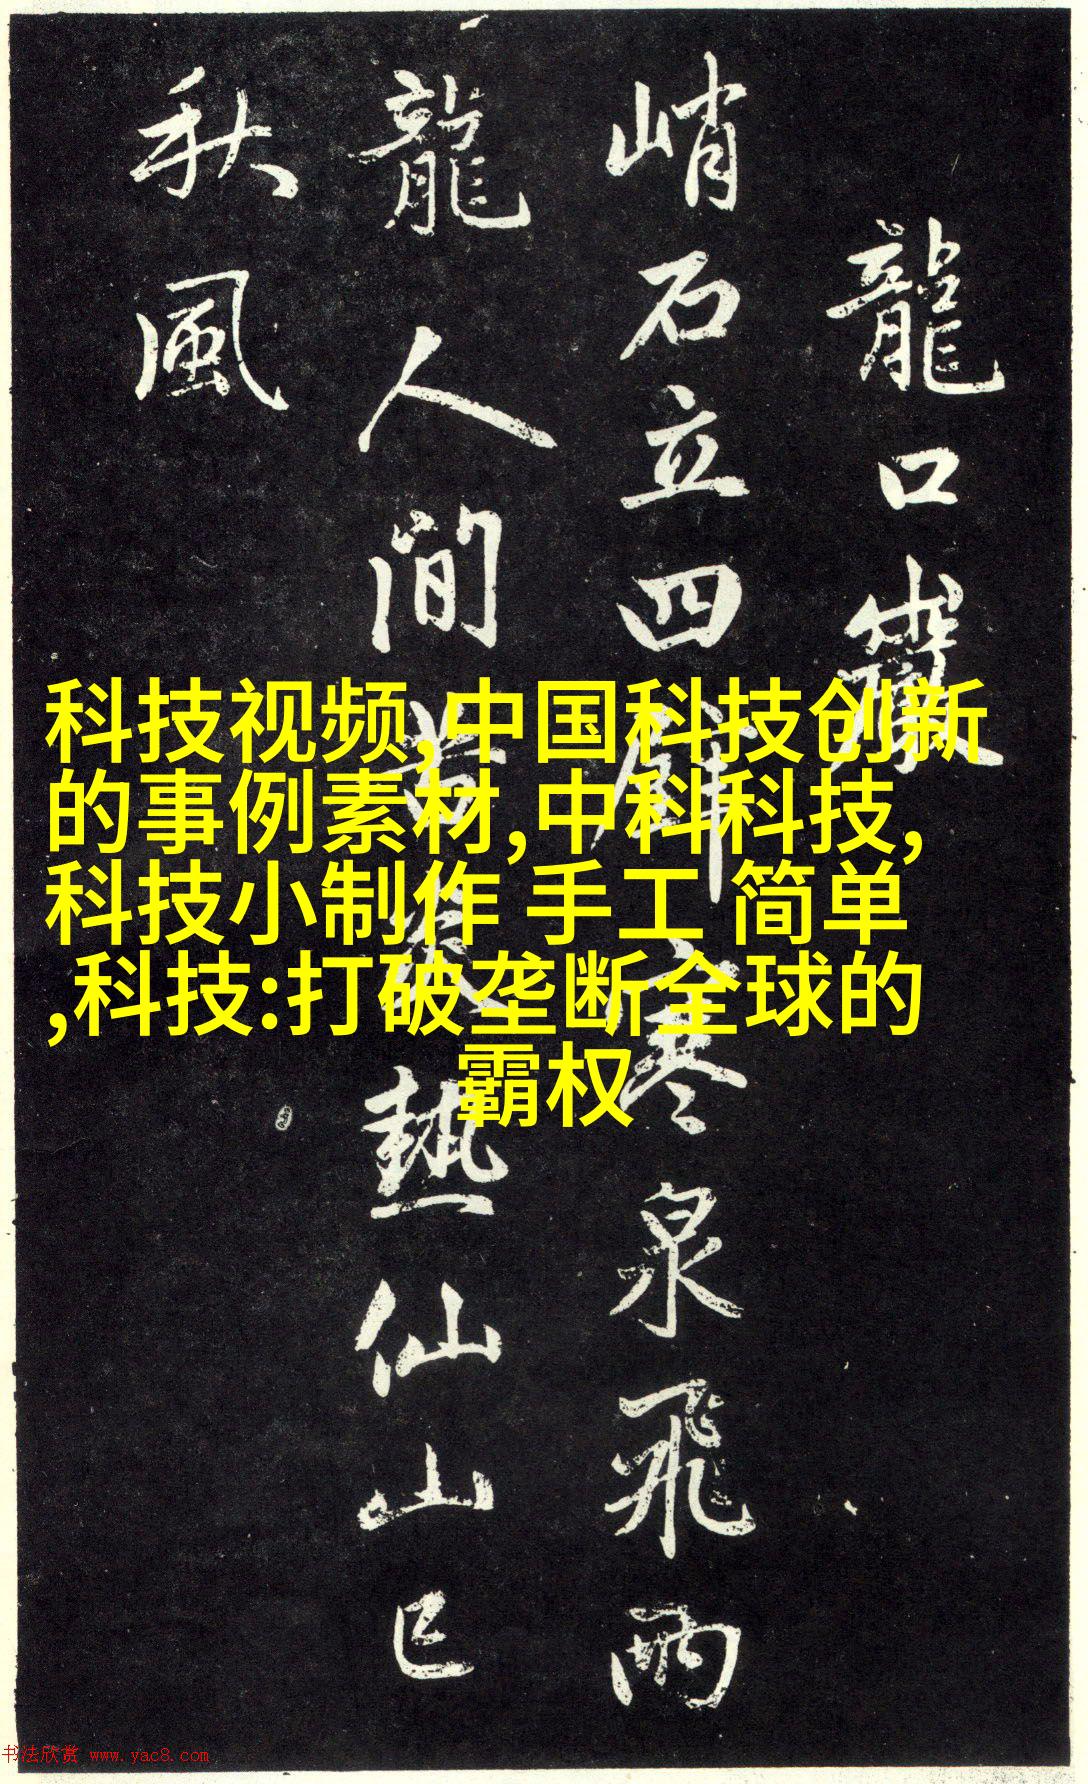 龍口巖
峭石立四壁寒泉飛兩
龍人間苦炎熱仙山已
秋風
科技视频,中国科技创新
的事例素材,中科科技,
科技小制作 手工 简单
,科技:打破垄断全球的
霸权
书法欣赏 www.yac8.com